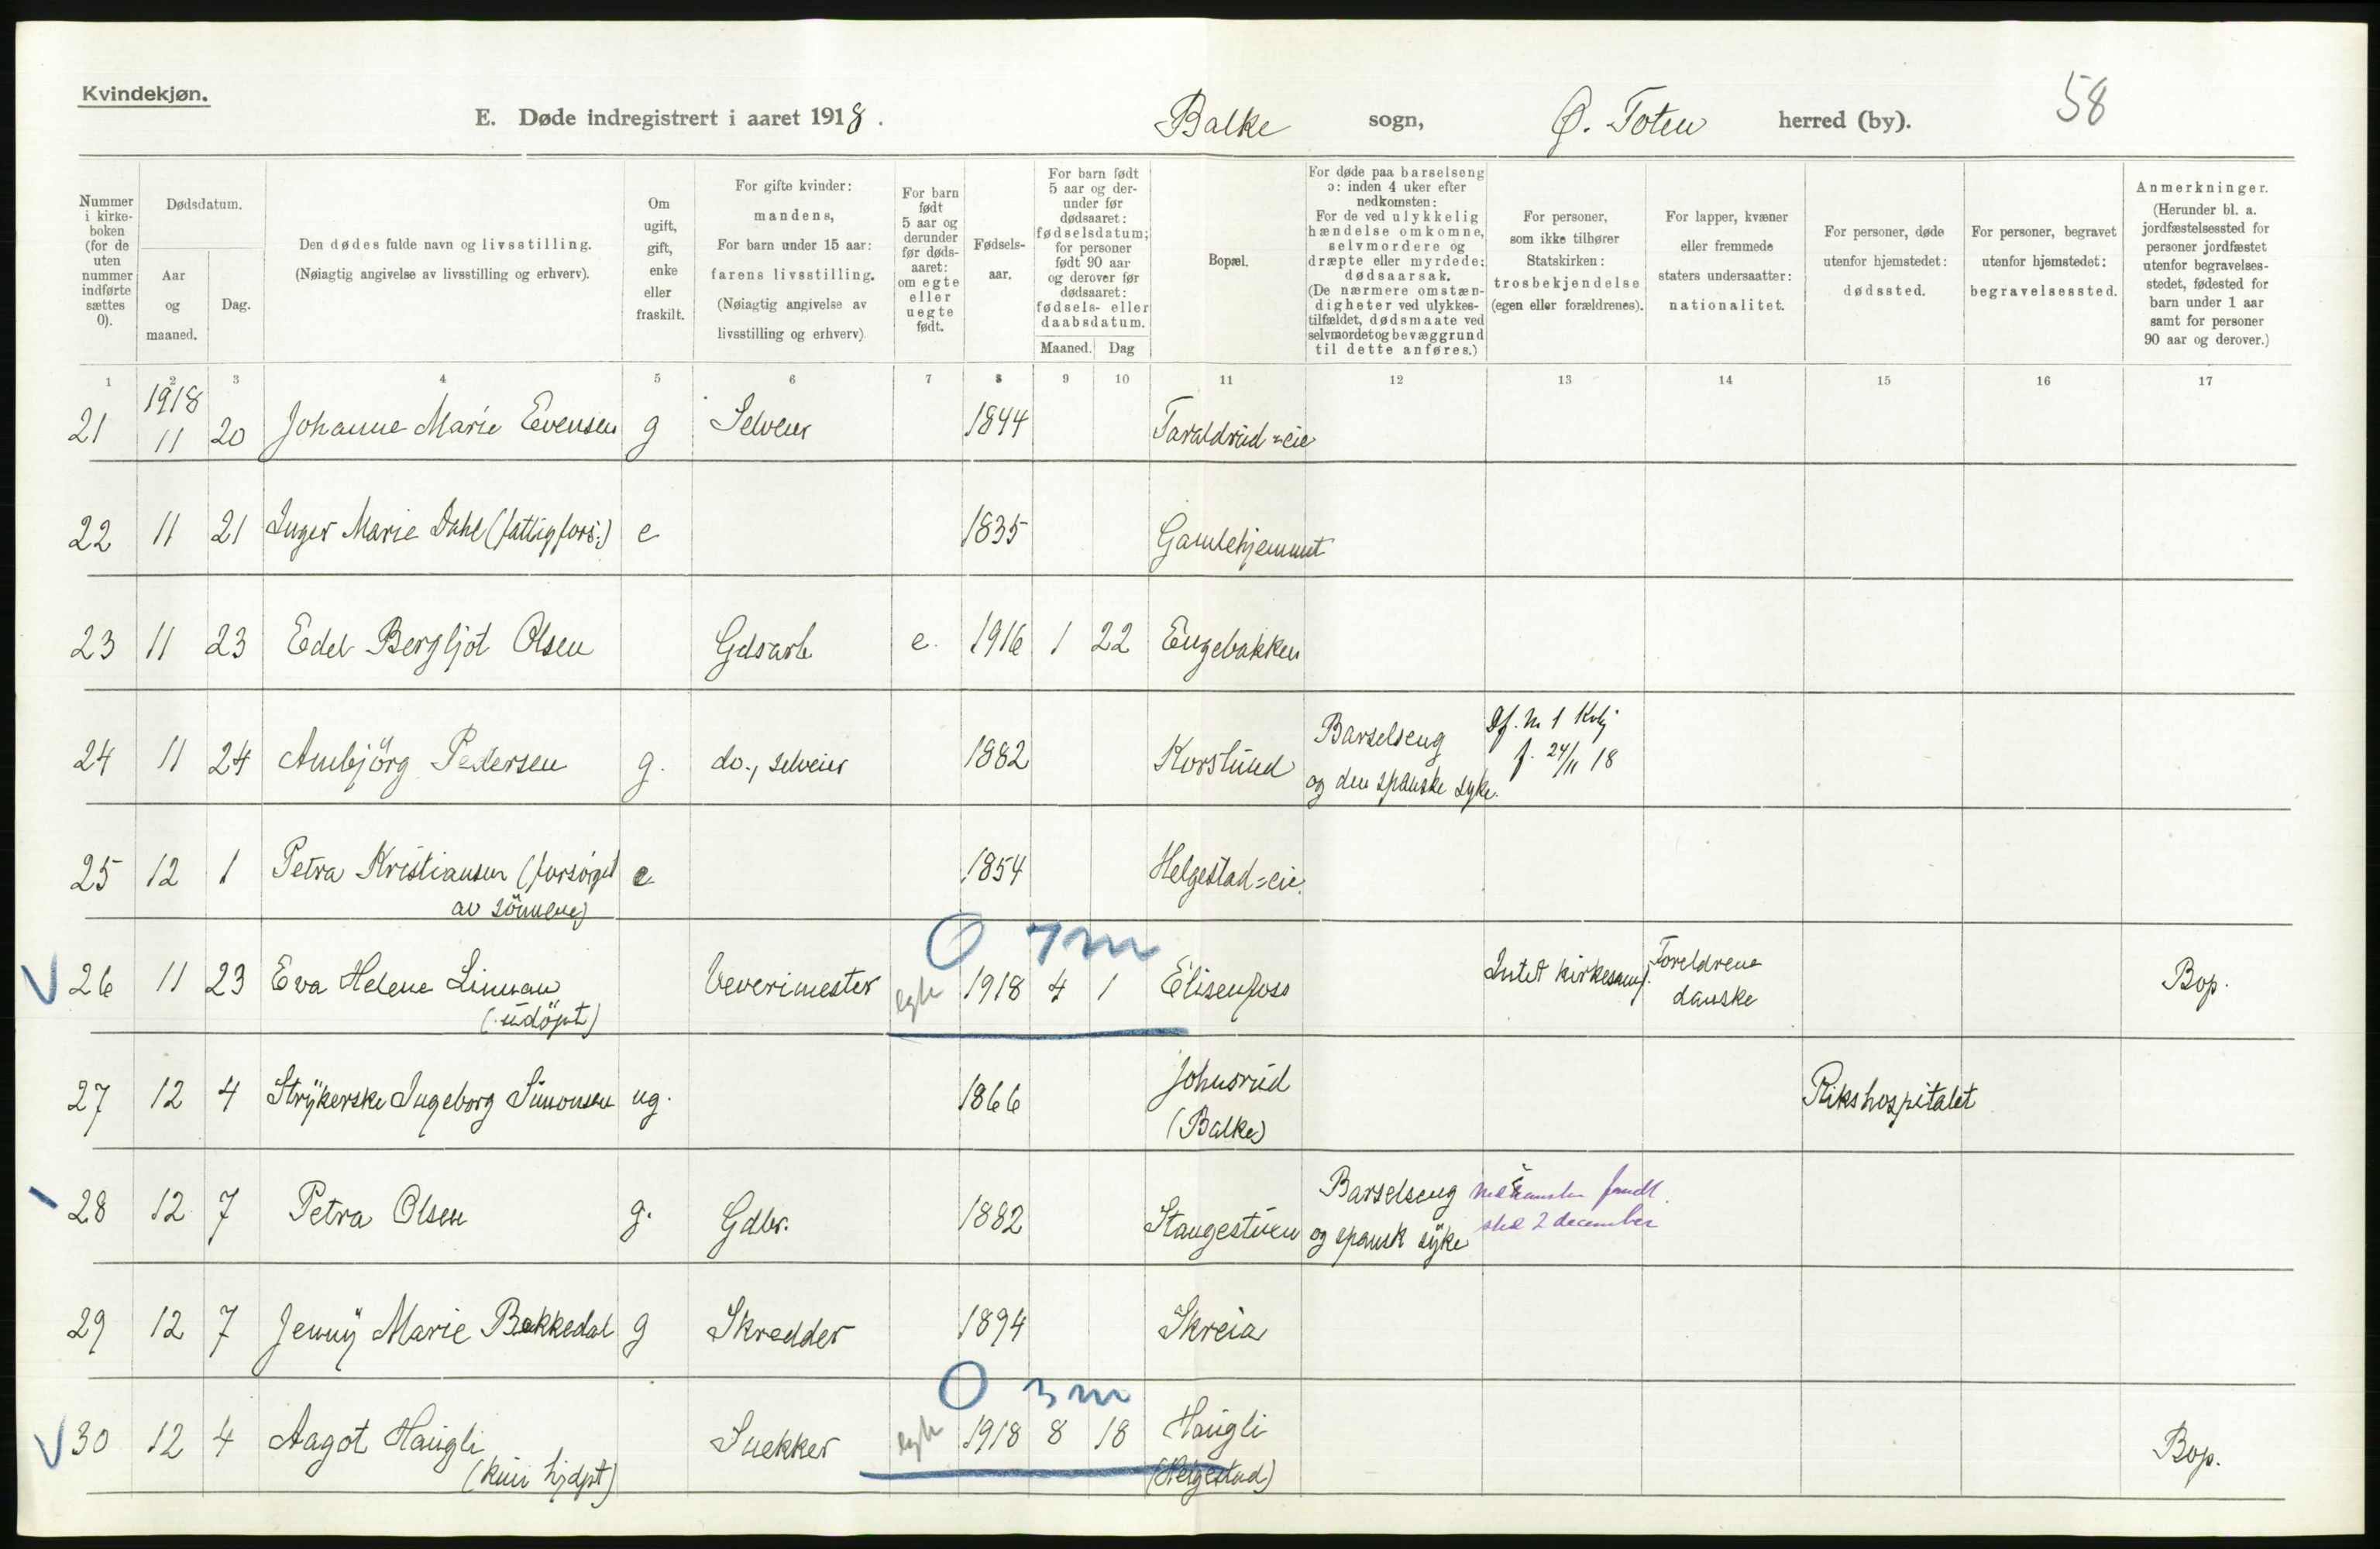 Kvindekjøn.
E. Døde indregistrert i aaret 1918. Balke sogn, Ø. Toten herred (by). 58
Nummer i kirke-boken (for de uten nummer indførte sættes 0).
Dødsdatum.
Aar og maaned.
Dag.
Den dødes fulde navn og livsstilling.
(Nøiagtig angivelse av livsstilling og erhverv).
Om ugift, gift, enke eller fraskilt.
For gifte kvinder: mandens,
For barn under 15 aar: farens livsstilling.
(Nøiagtig angivelse av livsstilling og erhverv)
For barn født 5 aar og derunder før døds-aaret: om egte eller uegte født.
Fødsels-aar.
For barn født 5 aar og der-under før dødsaaret: fødselsdatum; for personer født 90 aar og derover før dødsaaret: fødsels- eller daabsdatum.
Maaned. Dag
Bopæl.
For døde paa barselseng ɔ: inden 4 uker efter nedkomsten:
For de ved ulykkelig hændelse omkomne, selvmordere og dræpte eller myrdede: dødsaarsak.
(De nærmere omstæn-digheter ved ulykkes-tilfældet, dødsmaate ved selvmordet og bevæggrund til dette anføres.)
For personer, som ikke tilhører Statskirken: trosbekjendelse (egen eller forældrenes).
For lapper, kvæner eller fremmede staters undersaatter: nationalitet.
For personer, døde utenfor hjemstedet: dødssted.
For personer, begravet utenfor hjemstedet: begravelsessted.
Anmerkninger.
(Herunder bl. a. jordfæstelsessted for personer jordfæstet utenfor begravelses-stedet, fødested for barn under 1 aar samt for personer 90 aar og derover.)
1 2 3 4 5 6 7 8 9 10 11 12 13 14 15 16 17
1918
21 11 20 Johanne Marie Evensen g Selveier 1844 Taraldrud=eie
22 11 21 Inger Marie Dahl (fattigfors.) e 1835 Gamlehjemmet
23 11 23 Edel Bergljot Olsen Gdsarb e. 1916 1 22 Engebakken
24 11 24 Ambjörg Pedersen g. do., selveier 1882 Korslund Barselseng og den spanske syke. Df. n 1 Kvkj f. 24/11 18
25 12 1 Petra Kristiansen (forsörget av sönnene) e 1854 Helgestad=eie.
O 7m
26 11 23 Eva Helene Linman (udöpt) Veverimester egte 1918 4 1 Elisenfoss Intet kirkesamf. Foreldrene danske Bop.
27 12 4 Strykerske Ingeborg Simonsen ug. 1866 Johnsrud (Balke) Rikshospitalet
28 12 7 Petra Olsen g. Gdbr. 1882 Stangestuen Barselseng og spansk syke 2 december
29 12 7 Jenny Marie Bakkedal g Skredder 1894 Skreia
O 3m
30 12 4 Aagot Haugli (kun hjdpt) Snekker egte 1918 8 18 Haugli (Helgestad) Bop.